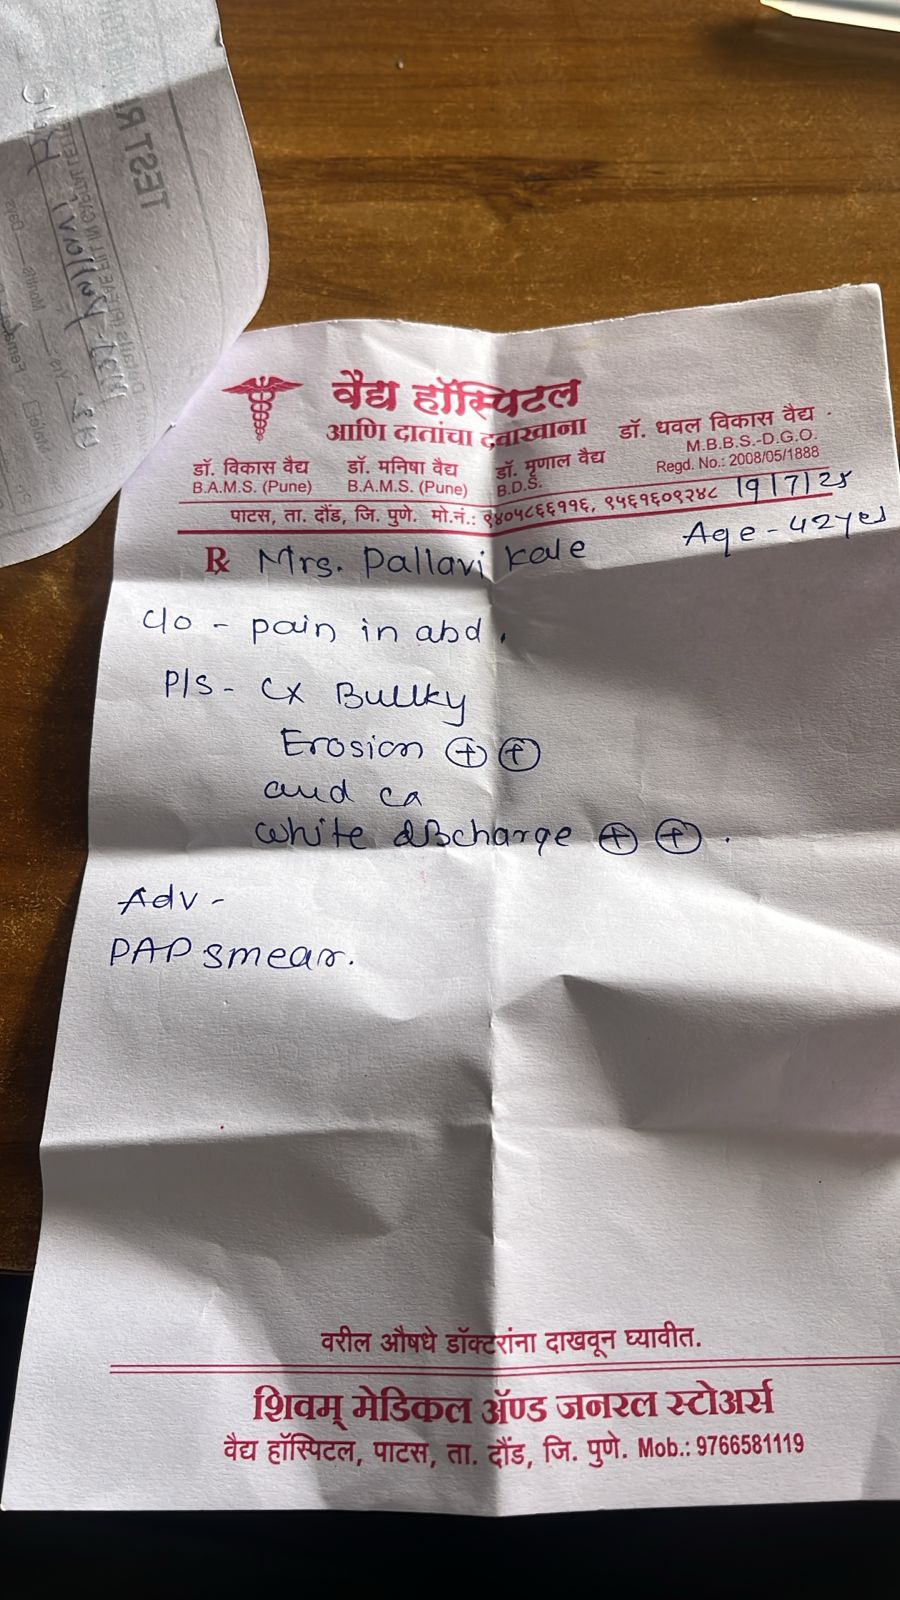 वैद्य हॉस्पिटल
आणि दातांचा दवाखाना
डॉ. विकास वैद्य
B.A.M.S. (Pune)
डॉ. मनिषा वैद्य
B.A.M.S. (Pune)
डॉ. मृणाल वैद्य
B.D.S.
डॉ. धवल विकास वैद्य
M.B.B.S.-D.G.O.
Regd. No.: 2008/05/1888
पाटस, ता. दौंड, जि. पुणे. मो.नं.: ९४०५८६६११६, ९५६१६०९२४८ 19/7/25
Rx Mrs. Pallavi Kale Age - 42yrs
c/o - pain in abd.
P/S - Cx Bullky
Erosion ⊕ ⊕
and ca
white discharge ⊕ ⊕.
Adv -
PAP smear.
वरील औषधे डॉक्टरांना दाखवून घ्यावीत.
शिवम् मेडिकल ॲण्ड जनरल स्टोअर्स
वैद्य हॉस्पिटल, पाटस, ता. दौंड, जि. पुणे. Mob.: 9766581119
TEST
Pallavi